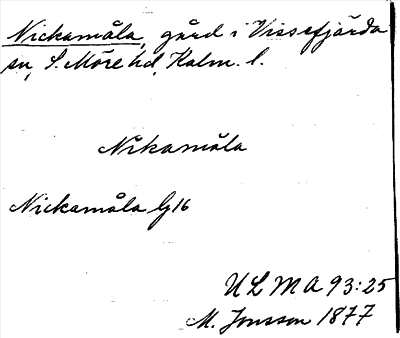 Nickamåla, gård i Vissefjärda
sn, S. Möre hd, Kalm. l.
Nikamåla
Nickamåla G16
ULMA 93:25
M. Jonsson 1877